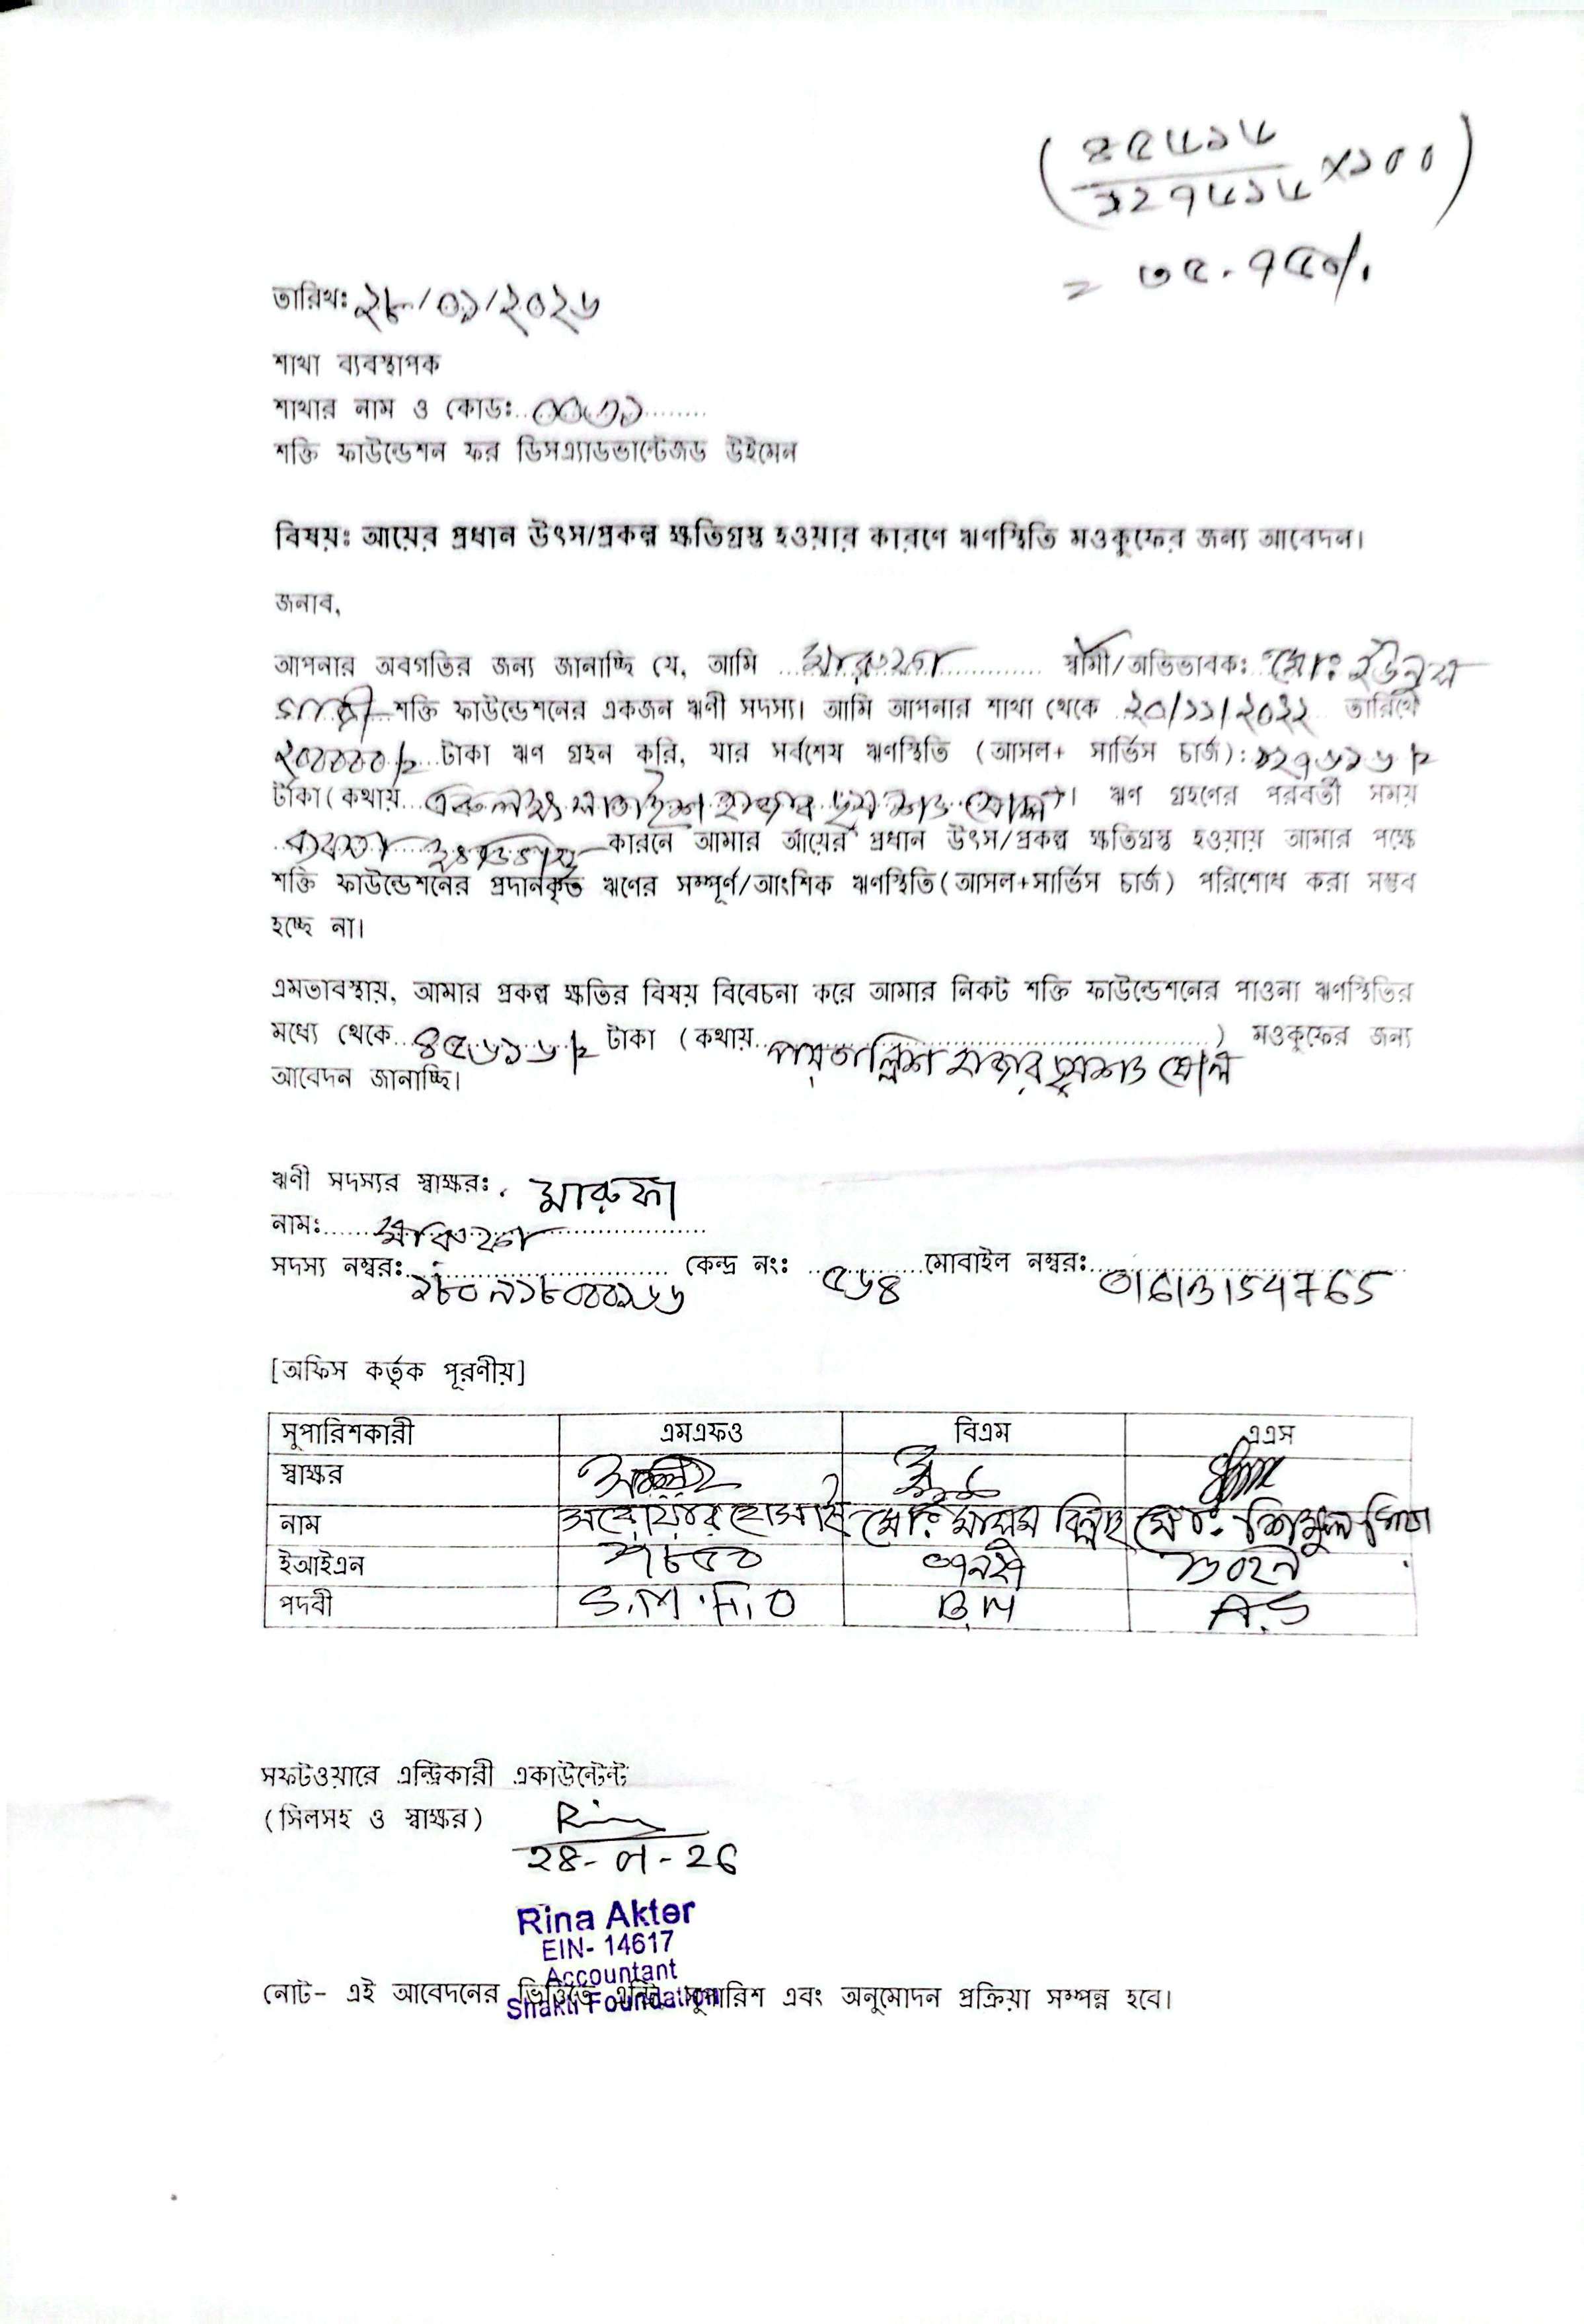 (৪৫৬১৬
১২৭৬১৬ ×১০০)
= ৩৫.৭৫%
তারিখঃ ২৮/০১/২০২৬
শাখা ব্যবস্থাপক
শাখার নাম ও কোডঃ.. ০০৩১ ........
শক্তি ফাউন্ডেশন ফর ডিসএ্যাডভান্টেজড উইমেন
বিষয়ঃ আয়ের প্রধান উৎস/প্রকল্প ক্ষতিগ্রস্ত হওয়ার কারণে ঋণস্থিতি মওকুফের জন্য আবেদন।
জনাব,
আপনার অবগতির জন্য জানাচ্ছি যে, আমি ... মারুফা ............ স্বামী/অভিভাবক: মোঃ ইউনুস
গাজী শক্তি ফাউন্ডেশনের একজন ঋণী সদস্য। আমি আপনার শাখা থেকে ২০/১১/২০২২ তারিখে
২০০০০০/= টাকা ঋণ গ্রহন করি, যার সর্বশেষ ঋণস্থিতি (আসল+ সার্ভিস চার্জ): ১২৭৬১৬/=
টাকা(কথায়.. এক লক্ষ সাতাইশ হাজার ছয় শত ষোল। ঋণ গ্রহণের পরবর্তী সময়
ব্যবসা কারনে আমার আয়ের প্রধান উৎস/প্রকল্প ক্ষতিগ্রস্ত হওয়ায় আমার পক্ষে
শক্তি ফাউন্ডেশনের প্রদানকৃত ঋণের সম্পূর্ণ/আংশিক ঋণস্থিতি(আসল+সার্ভিস চার্জ) পরিশোধ করা সম্ভব
হচ্ছে না।
এমতাবস্থায়, আমার প্রকল্প ক্ষতির বিষয় বিবেচনা করে আমার নিকট শক্তি ফাউন্ডেশনের পাওনা ঋণস্থিতির
মধ্যে থেকে.. ৪৫৬১৬/= টাকা (কথায়.. পয়তাল্লিশ হাজার ছয়শত ষোল ) মওকুফের জন্য
আবেদন জানাচ্ছি।
ঋণী সদস্যর স্বাক্ষরঃ. মারুফা
নামঃ...... মারুফা ................
সদস্য নম্বরঃ.. কেন্দ্র নংঃ ৫৬৪ মোবাইল নম্বরঃ 01613154765
[অফিস কর্তৃক পূরণীয়]
সুপারিশকারী এমএফও বিএম এএস
স্বাক্ষর
নাম হোসাইন মোঃ মাসুম বিল্লাহ মোঃ শিমুল
ইআইএন ৭৮৫০ ৬০২৯
পদবী S.M.F.O B.M A.S
সফটওয়ারে এন্ট্রিকারী একাউন্টেন্ট
(সিলসহ ও স্বাক্ষর) Rina
28-01-26
Rina Akter
EIN- 14617
Accountant
Shakti Foundation
নোট- এই আবেদনের ভিত্তিতে এন্ট্রি সুপারিশ এবং অনুমোদন প্রক্রিয়া সম্পন্ন হবে।